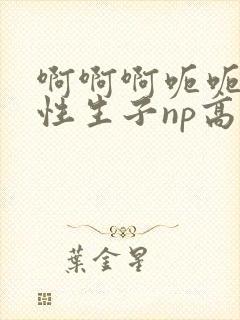 啊啊啊呃呃
性生子np高
葉金星